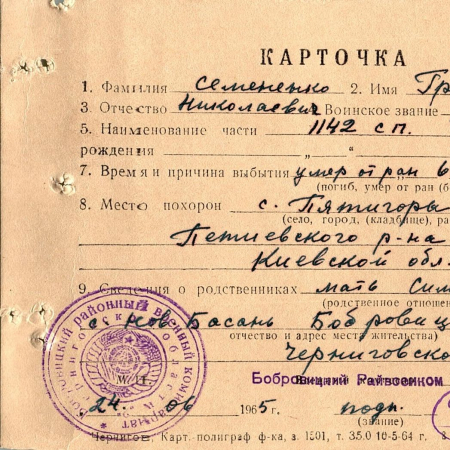 КАРТОЧКА
1. Фамилия Семененко 2. Имя Гр
3. Отчество Николаевич Воинское звание
5. Наименование части 1142 сп.
рождения „ “
7. Время и причина выбытия умер от ран 6
(погиб, умер от ран (б
8. Место похорон с. Пятигоры
(село, город, (кладбище), ра
Петиевского р-на
Киевской обл.
9. Сведения о родственниках мать Сим
(родственное отношен
с. Нов. Басань Бобровиц
отчество и адрес места жительства)
Черниговско
Бобровицкий Райвоенком
24. 06 1965 г. подп.
(звание)
Чернигов, Карт. полиграф ф-ка, з. 1501, т. 35.0 10-5-64 г.
Бобровицкий районный военный комиссариат